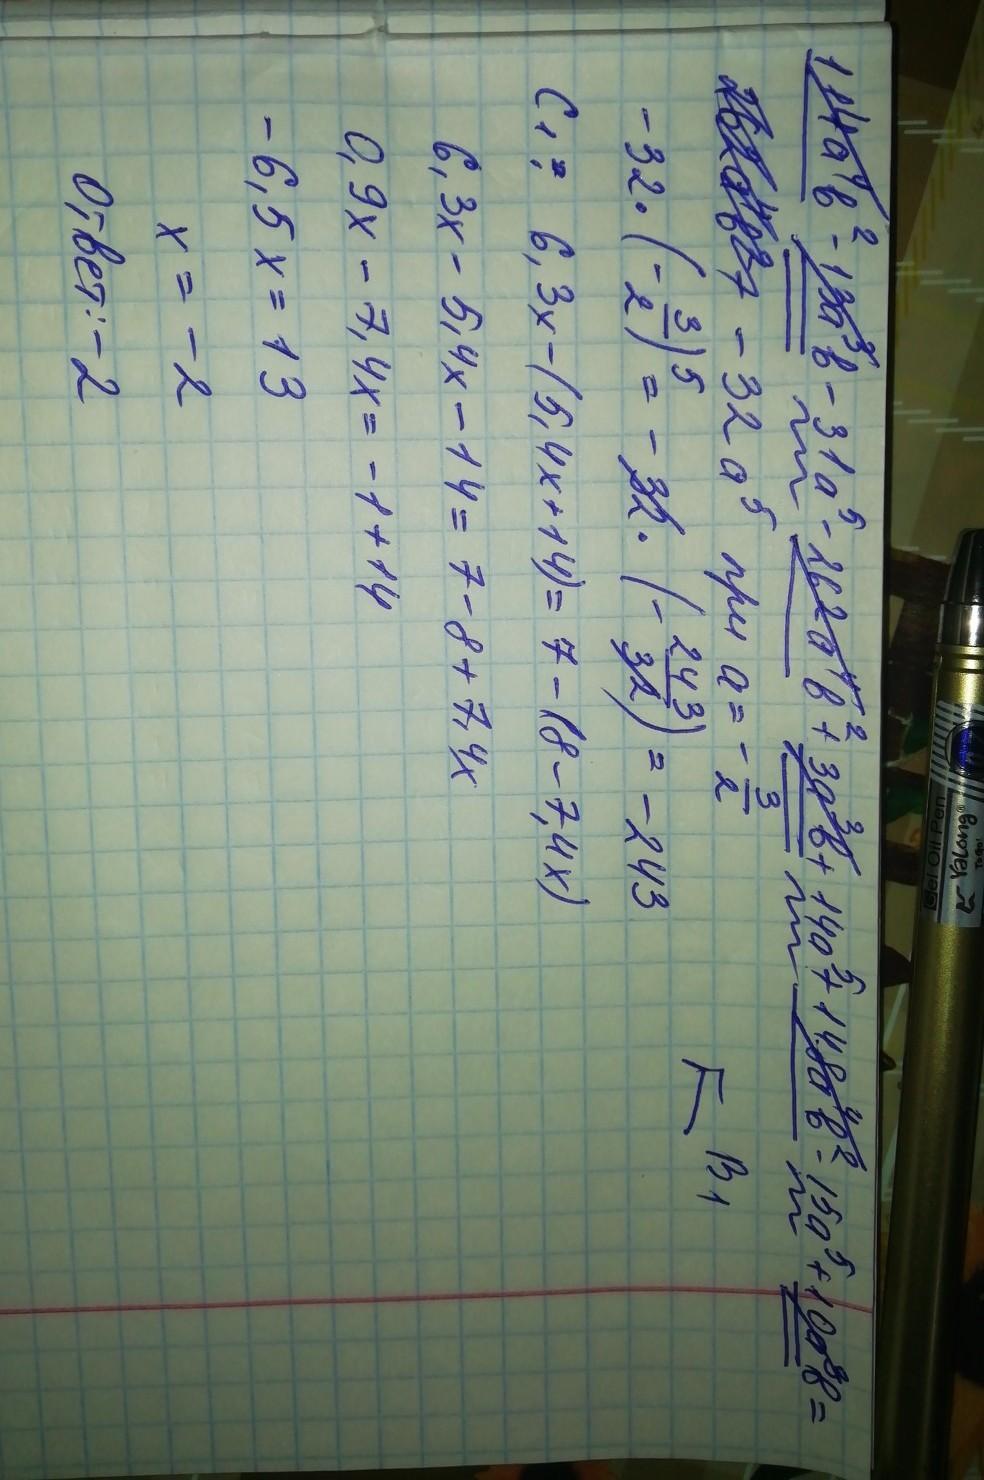 114a⁴b² - 13a³b - 31a⁵ - 262a⁴b² + 3a³b + 14a⁵ + 148a⁴b² - 15a⁵ + 10a³b =
- 32a⁵ при a = -3/2
-32 · (-3/2)⁵ = -32 · (-243/32) = -243
В1
С1: 6,3x - (5,4x + 14) = 7 - (8 - 7,4x)
6,3x - 5,4x - 14 = 7 - 8 + 7,4x
0,9x - 7,4x = -1 + 14
-6,5x = 13
x = -2
Ответ: -2
Gel Oil Pen
Yalong